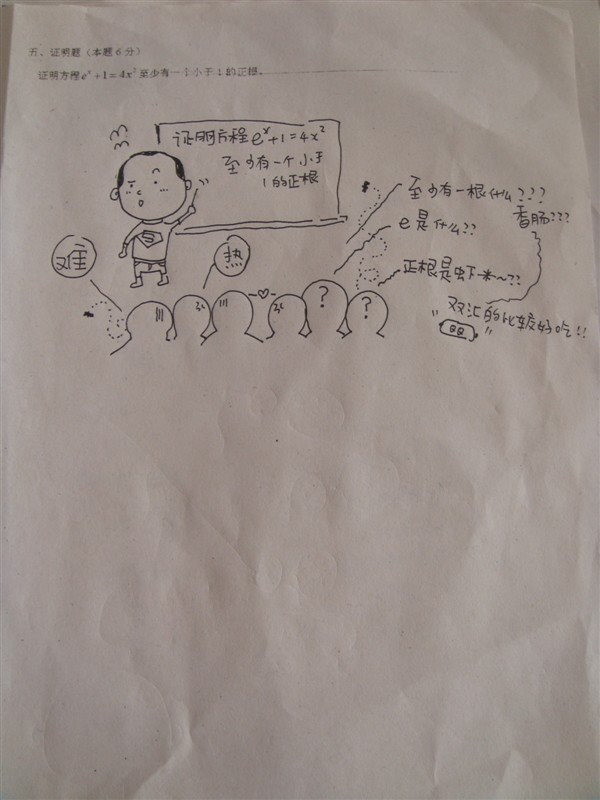 五、证明题（本题6分）
证明方程 eˣ+1=4x² 至少有一个小于1的正根。
证明方程 eˣ+1=4x²
至少有一个小于
1的正根
至少有一根什么???
香肠???
e是什么??
正根是虾米~??
"双汇的比较好吃!!"
难
热
???